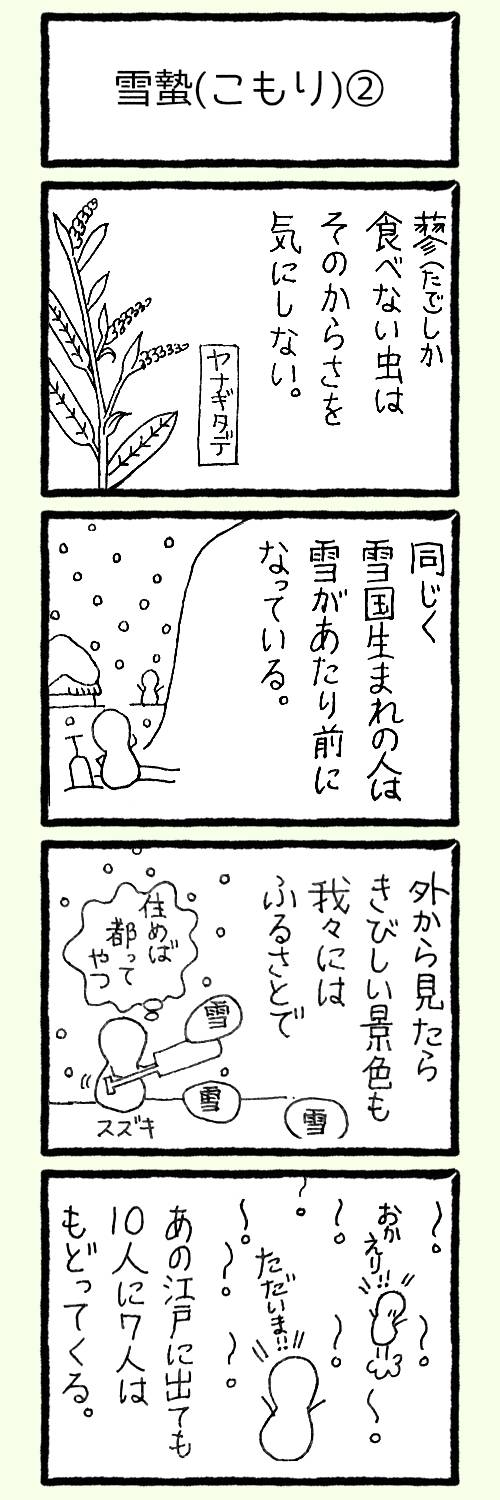 雪蟄(こもり)②
蓼(たで)しか
食べない虫は
そのからさを
気にしない。
ヤナギタデ
同じく
雪国生まれの人は
雪があたり前に
なっている。
外から見たら
きびしい景色も
我々には
ふるさとで
住めば
都って
やつ
雪
雪
雪
スズキ
おか
えり!!
ただいま!!
あの江戸に出ても
10人に7人は
もどってくる。